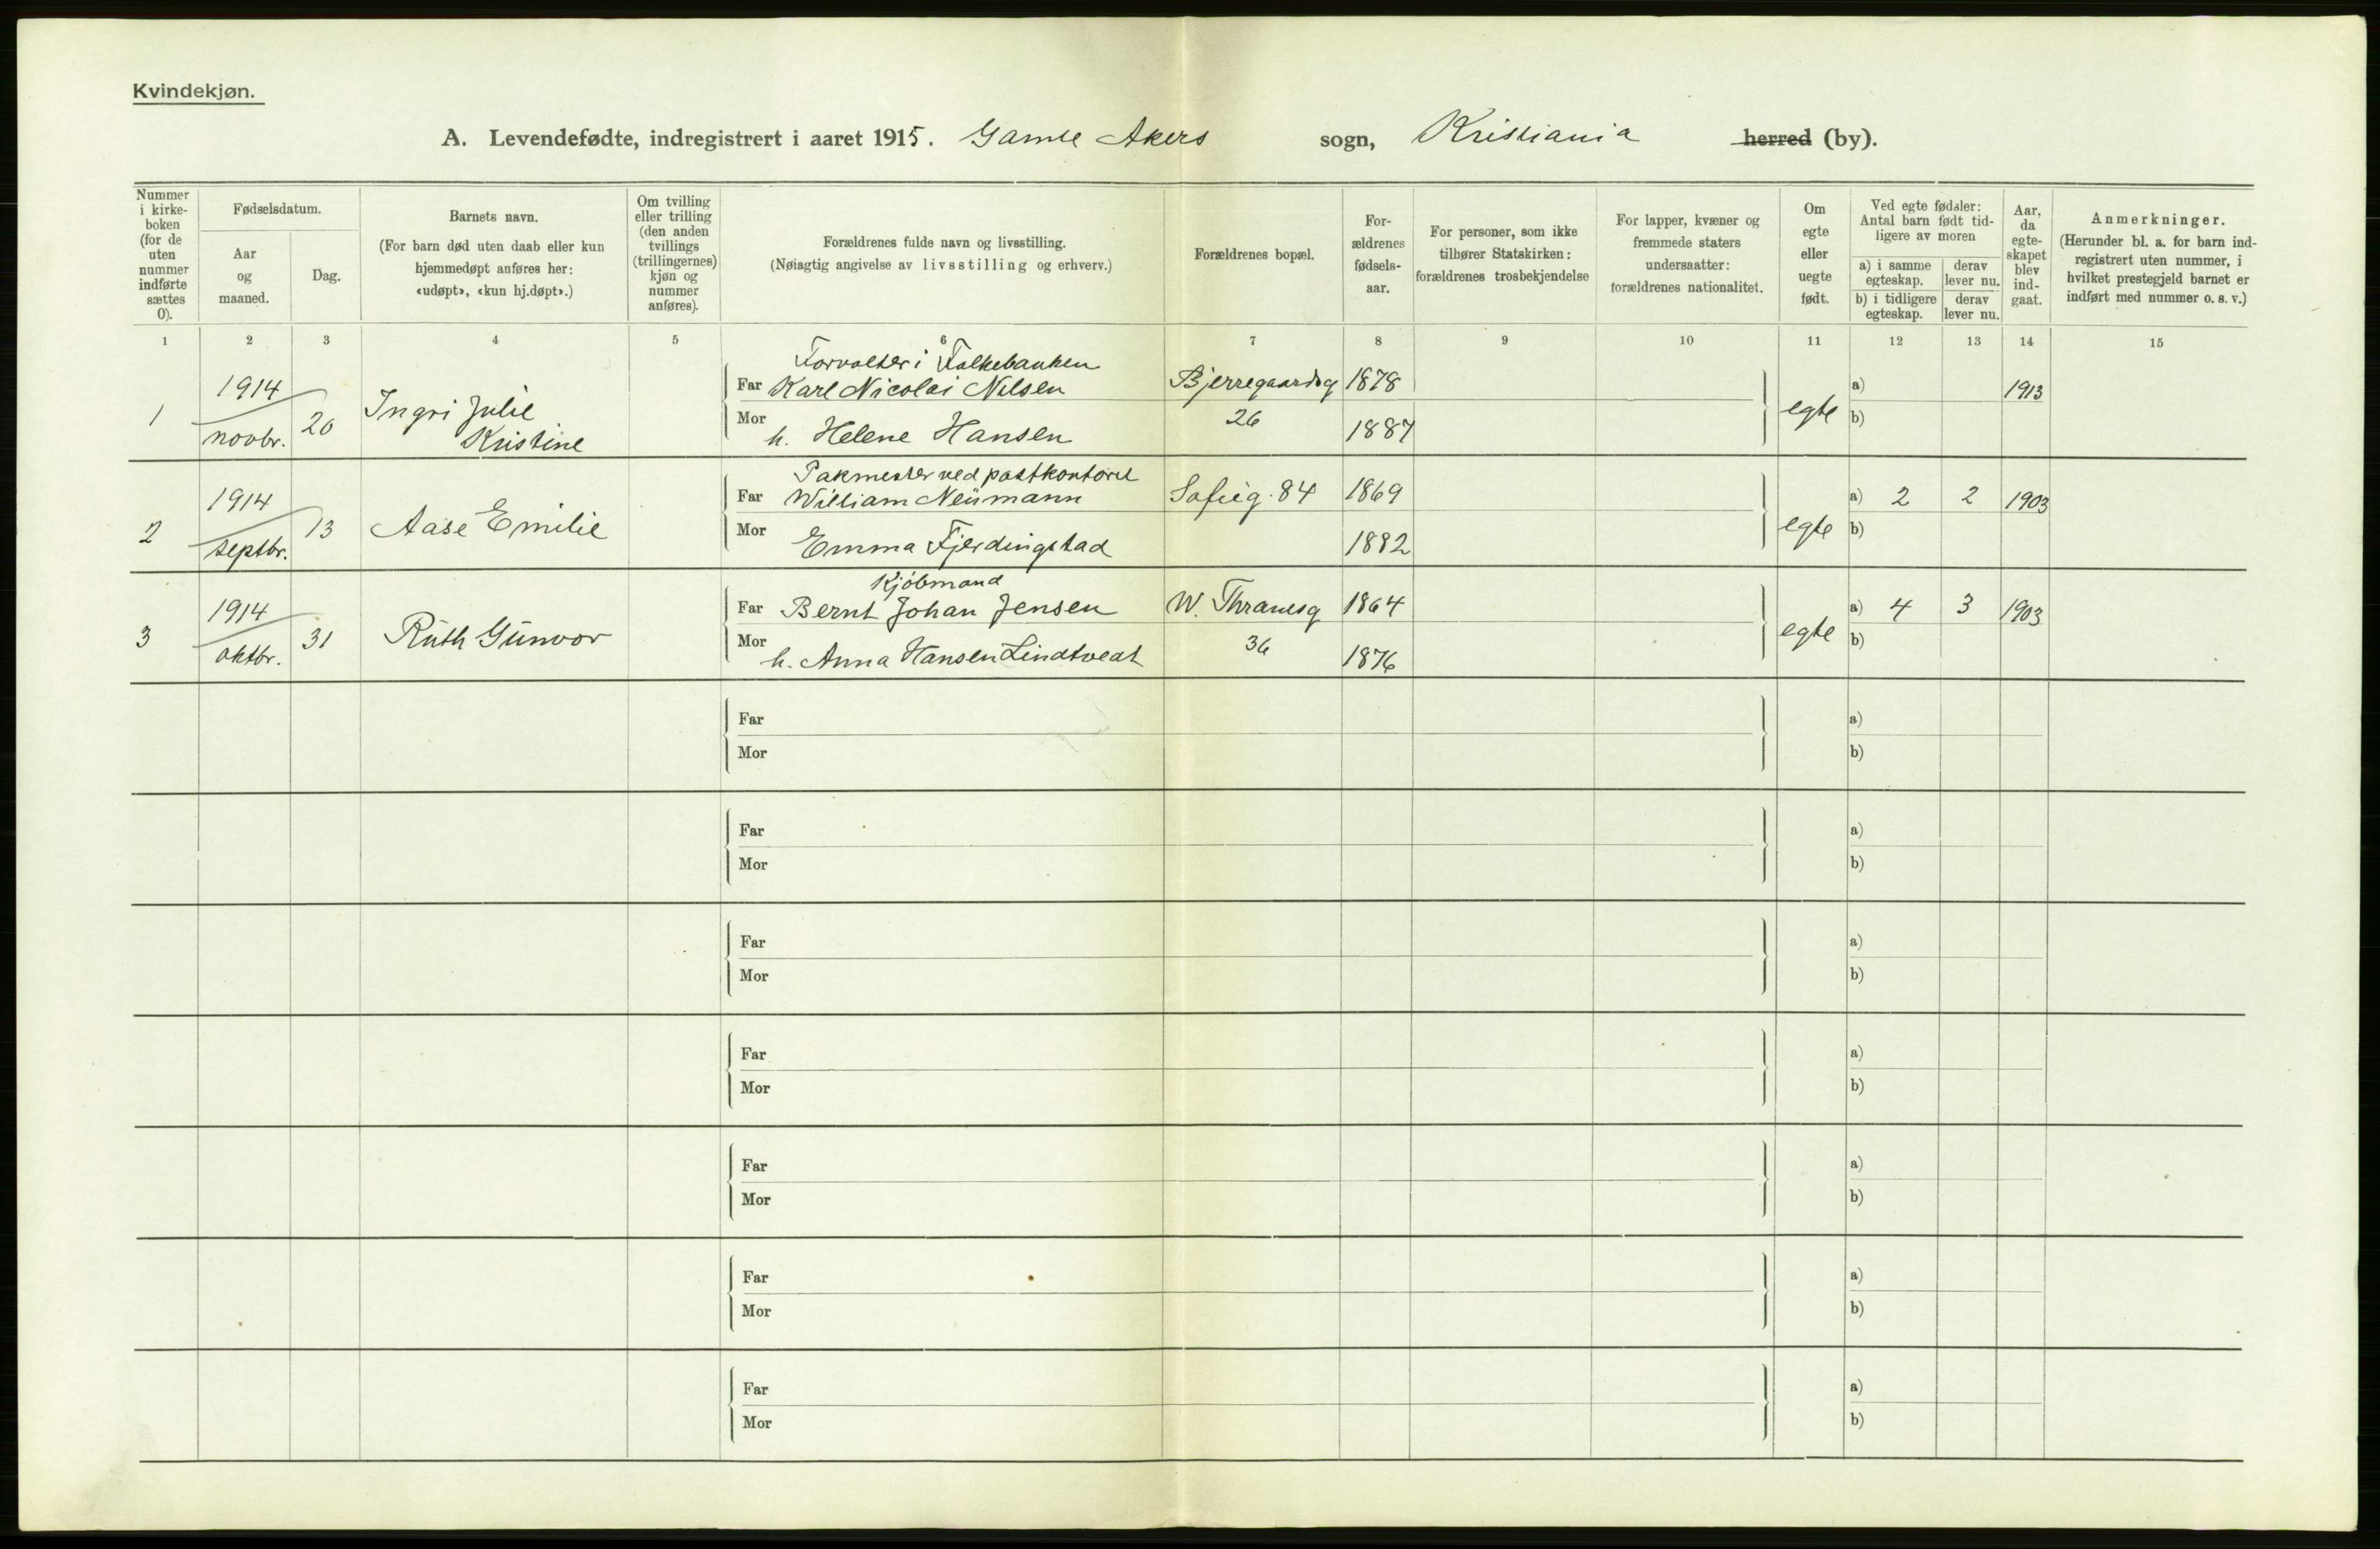 Kvindekjøn.
A. Levendefødte, indregistrert i aaret 1915. Gamle Akers sogn, Kristiania herred (by).
Nummer i kirke-boken (for de uten nummer indførte sættes 0).
Fødselsdatum.
Aar og maaned.
Dag.
Barnets navn.
(For barn død uten daab eller kun hjemmedøpt anføres her: «udøpt», «kun hj.døpt».)
Om tvilling eller trilling (den anden tvillings (trillingernes) kjøn og nummer anføres).
Forældrenes fulde navn og livsstilling.
(Nøiagtig angivelse av livsstilling og erhverv.)
Forældrenes bopæl.
For-ældrenes fødsels-aar.
For personer, som ikke tilhører Statskirken: forældrenes trosbekjendelse
For lapper, kvæner og fremmede staters undersaatter: forældrenes nationalitet.
Om egte eller uegte født.
Ved egte fødsler: Antal barn født tid-ligere av moren
a) i samme egteskap.
derav lever nu.
b) i tidligere egteskap.
derav lever nu.
Aar, da egte-skapet blev ind-gaat.
Anmerkninger.
(Herunder bl. a. for barn ind-registrert uten nummer, i hvilket prestegjeld barnet er indført med nummer o. s. v.)
1 2 3 4 5 6 7 8 9 10 11 12 13 14 15
Forvalter i Folkebanken
1 1914 novbr. 20 Ingri Julie Kristine Far Karl Nicolai Nilsen Bjerregaardsg 26 1878 egte a) 1913
Mor h. Helene Hansen 1887 b)
Pakmester ved postkontoret
2 1914 septbr. 13 Aase Emilie Far William Neümann Sofieg. 84 1869 egte a) 2 2 1903
Mor Emma Fjerdingstad 1882 b)
Kjöbmand
3 1914 oktbr. 31 Rüth Günvor Far Bernt Johan Jensen W. Thranesg 36 1864 egte a) 4 3 1903
Mor h. Anna Hansen Lindtvedt 1876 b)
Far a)
Mor b)
Far a)
Mor b)
Far a)
Mor b)
Far a)
Mor b)
Far a)
Mor b)
Far a)
Mor b)
Far a)
Mor b)